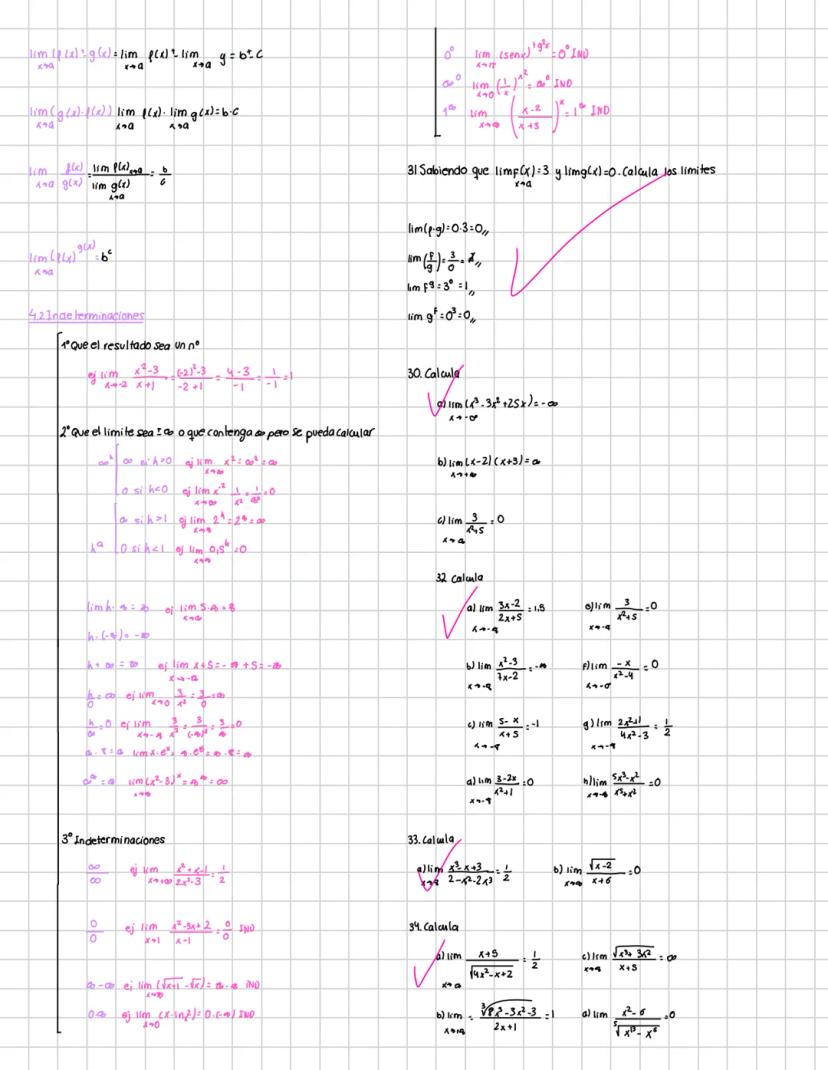 lim (f(x) ± g(x) = lim f(x) ± lim g = b ± c
x→a x→a x→a
lim (g(x)·f(x)) lim f(x) · lim g(x) = b·c
x→a x→a x→a
lim f(x)/g(x) = lim f(x) x→a / lim g(x) x→a = b/c
x→a
lim (f(x)^g(x) = b^c
x→a
4.2 Indeterminaciones
1º Que el resultado sea un nº
ej lim x²-3/x+1 = (-2)²-3/-2+1 = 4-3/-1 = 1/-1 = 1
x→-2
2º Que el limite sea ± ∞ o que contenga ∞ pero se pueda calcular
∞ si h>0 ej lim x² = ∞² = ∞
0 si h<0 ej lim x^-2 1/x² = 1/∞² = 0
∞ si h>1
0 si h<1
lim h·∞ = ∞ ej lim 5·∞ = ∞
h·(-∞) = -∞
h+∞ = ∞ ej lim x+5 = -∞+5 = -∞
h/0 = ∞ ej lim 3/x² = 3/0 = ∞
x→0
3º Indeterminaciones
∞/∞ ej lim x²+x-1/2x²-3 = 1/2
x→+∞
0/0 ej lim x²-3x+2/x-1 = 0/0 IND
x→1
∞-∞ ej lim (√x+1 - √x) = ∞-∞ IND
0·∞ ej lim (x·ln x²) = 0·(-∞) IND
x→0
0⁰ lim (senx)^tg²x = 0⁰ IND
x→π
∞⁰ lim (1/x)^x² = ∞⁰ IND
x→0
1^∞ lim (x-2/x+3)^x = 1^∞ IND
x→∞
31 Sabiendo que lim f(x) = 3 y lim g(x) = 0. Calcula los limites
x→a
lim (f·g) = 0·3 = 0,,
lim (f/g) = 3/0 =
lim f^g = 3⁰ = 1,,
lim g^f = 0³ = 0,,
30. Calcula
a) lim (x³ - 3x² + 25x) = -∞
x→-∞
b) lim (x-2)(x+3) = ∞
x→+∞
c) lim 3/x²+5 = 0
32 Calcula
a) lim 3x-2/2x+5 = 1,5
e) lim 3/x²+5 = 0
b) lim x²-3/7x-2 = -∞
f) lim -x/x²-4 = 0
c) lim 5-x/x+5 = -1
g) lim 2x²+1/4x²-3 = 1/2
d) lim 3-2x/x²+1 = 0
h) lim 5x³-x²/x⁵+x² = 0
33. Calcula
a) lim x³-x+3/2-x²-2x³ = 1/2
b) lim √x-2/x+6 = 0
34. Calcula
a) lim x+5/√4x²-x+2 = 1/2
c) lim √x³+3x²/x+5 = ∞
b) lim = ³√8x³-3x²-3/2x+1 = 1
d) lim x²-6/